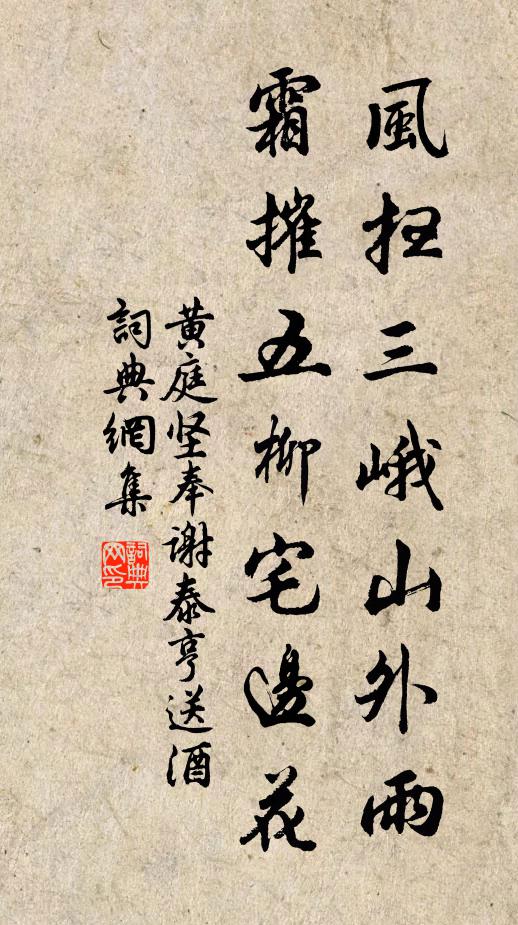 風三峨山外雨
霜摧五柳宅邊花
黄庭坚奉谢泰亨送酒
詞典網集
詞典网印